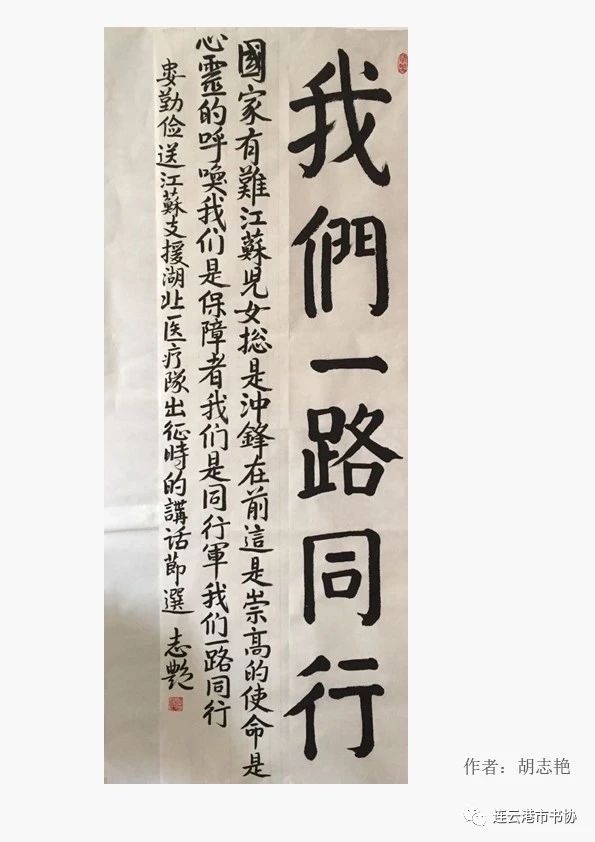 我們一路同行
國家有難江蘇児女総是沖鋒在前這是崇高的使命是
心靈的呼喚我们是保障者我们是同行軍我们一路同行
娄勤俭送江蘇支援湖北医疗隊出征時的講话節選 志艷
作者：胡志艳
连云港市书协